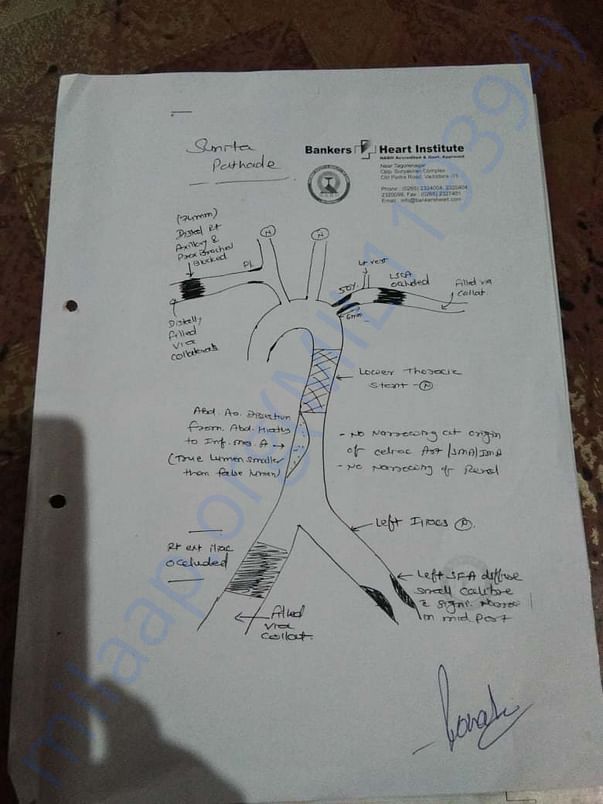 Sunita
Pathade
Bankers Heart Institute
NABH Accredited & Govt. Approved
Near Tagorenagar
Opp. Suryakiran Complex
Old Padra Road, Vadodara -15
Phone : (0265)
Email : info@bankersheart.com
Distal Rt
Axillary &
Prox Brachial
Blocked
N
N
50%
Lt vert
LSCA
occluded
Filled via
collat.
6mm
Distally
filled
via
collaterals
Lower Thoracic
Stent - N
Abd. Ao. Dissection
from Abd. Hiatus
to Inf. mes. A
(True lumen smaller
than false lumen)
- No Narrowing at origin
of celiac Art / SMA / IMA
- No Narrowing of Renal
Left Iliacs N.
Rt ext iliac
occluded
Left SFA diffuse
small calibre
signi. Narrow
in mid part
filled
via
collat.
milaap.org/MIL/1193941